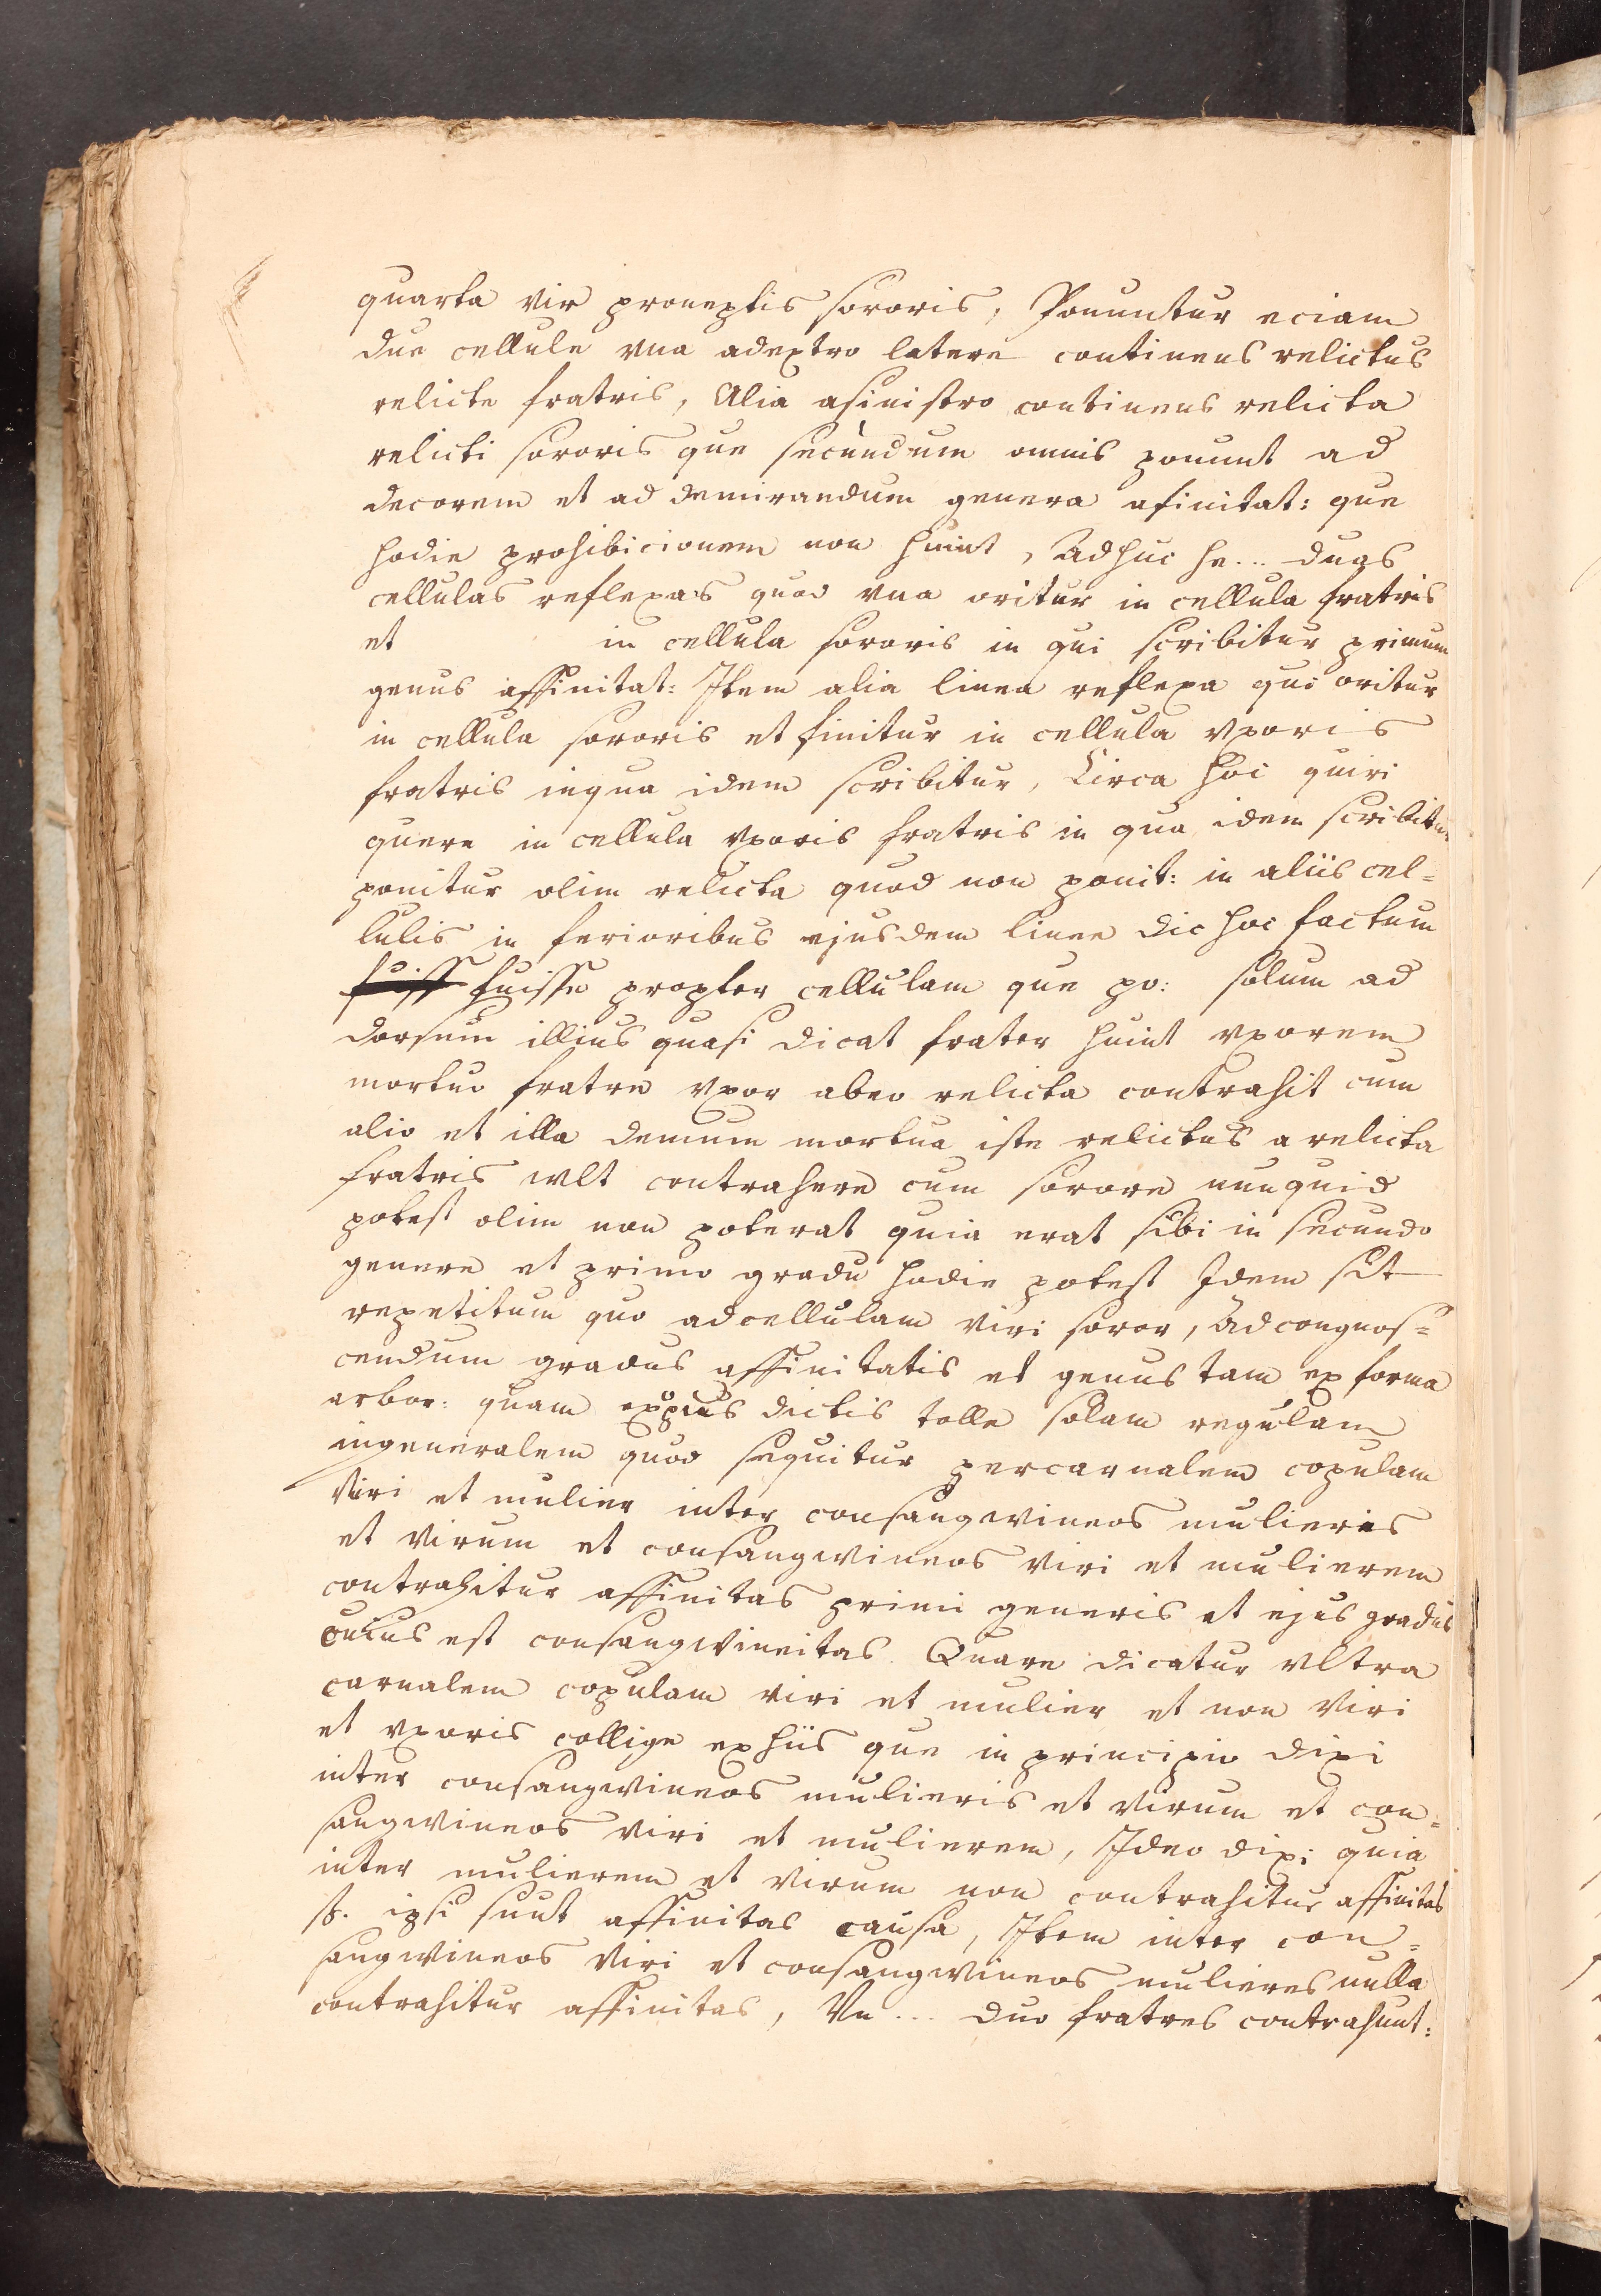 quarta vir proneptis sororis, Ponuntur eciam
due cellule vna adextro latere continens relictus
relicte fratris, Alia asinistro continens relicta
relicti sororis que secundum omnis ponunt ad
decorem et ad demirandum genera afinitat: que
hodie prohibicionem non huint, Adhuc he... duas
cellulas reflexas quod vna oritur in cellula fratris
et in cellula sororis in qui scribitur primum
genus affinitat: Item alia linea reflexa qui oritur
in cellula sororis et finitur in cellula vxoris
fratris inqua idem scribitur, Circa hoc quiri
quere in cellula vxoris fratris in qua idem scribitur
ponitur olim relicta quod non ponit: in aliis cel=
lulis in ferioribus ejusdem linee dic hoc factum
fuiss fuisse propter cellulam que po: solum ad
dorsum illius quasi dicat frater huint vxorem
mortuo fratre vxor abeo relicta contrahit cum
alio et illa demum mortua iste relictus a relicta
fratris wlt contrahere cum sorore nunquid
potest olim non poterat quia erat sibi in secundo
genere et primo gradu hodie potest Idem sit
repetitum quo adcellulam viri soror, Ad congnos=
cendum gradus affinitatis et genus tam ex forma
arbor: quam dictis tolle solam regulam
ingeneralem quod sequitur percarnalem copulam
Viri et mulier inter consangwineos mulieris
et virum et consangwineos viri et mulierem
contrahitur affinitas primi generis et ejus gradus
cuius est consangwineitas. Quare dicatur vltra
carnalem copulam viri et mulier et non Viri
et vxoris collige exhiis que in principio dixi
inter consangwineos mulieris et virum et con=
sangwineos viri et mulierem, Ideo dixi quia
inter mulierem et virum non contrahitur affinitas
sz. ipsi sunt affinitas causa, Item inter con=
sangwineos Viri et consangwineos mulieres nulla
contrahitur affinitas, Vn... duo fratres contrahunt: